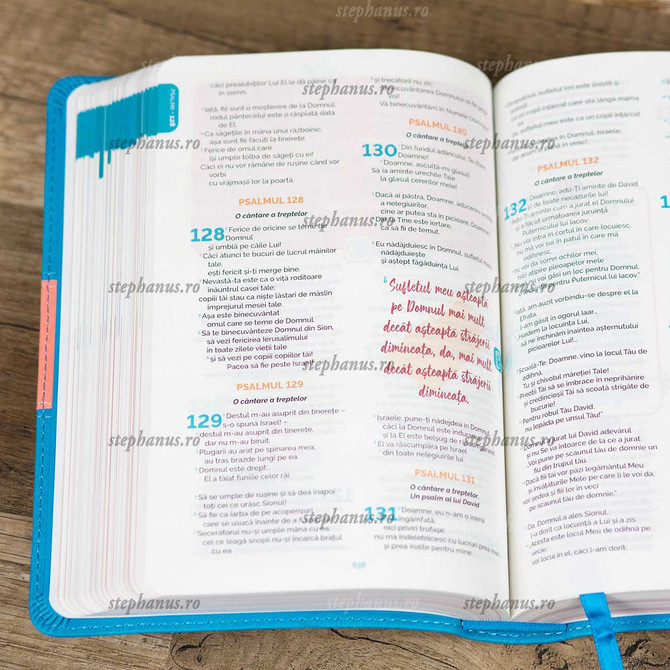 stephanus.ro
PSALMII • 128
căci preaiubiților Lui El le dă pâine ca
în somn.
Iată, fiii sunt o moștenire de la Domnul,
rodul pântecelui este o răsplată dată
de El.
Ca săgețile în mâna unui războinic,
așa sunt fiii făcuți la tinerețe.
Ferice de omul care
își umple tolba de săgeți cu ei!
Căci ei nu vor rămâne de rușine când vor
vorbi
cu vrăjmașii lor la poartă.
PSALMUL 128
O cântare a treptelor
128 Ferice de oricine se teme de
Domnul
și umblă pe căile Lui!
Căci atunci te bucuri de lucrul mâinilor
tale,
ești fericit și-ți merge bine.
Nevastă-ta este ca o viță roditoare
înăuntrul casei tale;
copiii tăi stau ca niște lăstari de măslin
împrejurul mesei tale.
Așa este binecuvântat
omul care se teme de Domnul.
Să te binecuvânteze Domnul din Sion,
să vezi fericirea Ierusalimului
în toate zilele vieții tale
și să vezi pe copiii copiilor tăi!
Pacea să fie peste Israel!
PSALMUL 129
O cântare a treptelor
129 Destul m-au asuprit din tinerețe –
s-o spună Israel! –
destul m-au asuprit din tinerețe,
dar nu m-au biruit.
Plugarii au arat pe spinarea mea,
au tras brazde lungi pe ea.
Domnul este drept:
El a tăiat funiile celor răi.
Să se umple de rușine și să dea înapoi
toți cei ce urăsc Sionul!
Să fie ca iarba de pe acoperișuri,
care se usucă înainte de a fi
Secerătorul nu-și umple mâna cu ea,
cel ce leagă snopii nu-și încarcă brațul
cu ea
și trecătorii nu zic:
Binecuvântarea Domnului să fie peste
voi!
Vă binecuvântăm în Numele Domnului!
PSALMUL 130
O cântare a treptelor
130 Din fundul adâncului, Te chem,
Doamne!
Doamne, ascultă-mi glasul!
Să ia aminte urechile Tale
la glasul cererilor mele!
Dacă ai păstra, Doamne, aducerea aminte
a nelegiuirilor,
cine ar putea sta în picioare, Doamne?
Dar la Tine este iertare,
ca să fii de temut.
Eu nădăjduiesc în Domnul, sufletul meu
nădăjduiește
și aștept făgăduința Lui.
6 Sufletul meu așteaptă
pe Domnul mai mult
decât așteaptă străjerii
dimineața, da, mai mult
decât așteaptă străjerii
dimineața.
Israele, pune-ți nădejdea în Domnul,
căci la Domnul este îndurarea
și la El este belșug de răscumpărare!
El va răscumpăra pe Israel
din toate nelegiuirile lui.
PSALMUL 131
O cântare a treptelor.
Un psalm al lui David
131 Doamne, eu n-am o inimă
îngâmfată,
nici priviri trufașe;
nu mă îndeletnicesc cu lucruri prea
și prea înalte pentru mine.
PSALMUL 132
O cântare a treptelor
132 Doamne, adu-Ți aminte de David
și de toate necazurile lui!
Adu-Ți aminte cum a jurat el Domnului
și a făcut următoarea juruință
Puternicului lui Iacov:
„Nu voi intra în cortul în care locuiesc,
nu mă voi sui în patul în care mă
odihnesc,
nu voi da somn ochilor mei,
nici ațipire pleoapelor mele
până nu voi găsi un loc pentru Domnul,
o locuință pentru Puternicul lui Iacov.”
Iată, am auzit vorbindu-se despre el la
Efrata,
l-am găsit în ogorul Iaar...
Haidem la locuința Lui,
să ne închinăm înaintea așternutului
picioarelor Lui!...
Scoală-Te, Doamne, vino la locul Tău de
odihnă,
Tu și chivotul măreției Tale!
Preoții Tăi să se îmbrace în neprihănire
și credincioșii Tăi să scoată strigăte de
bucurie!
Pentru robul Tău David,
nu lepăda pe unsul Tău!”